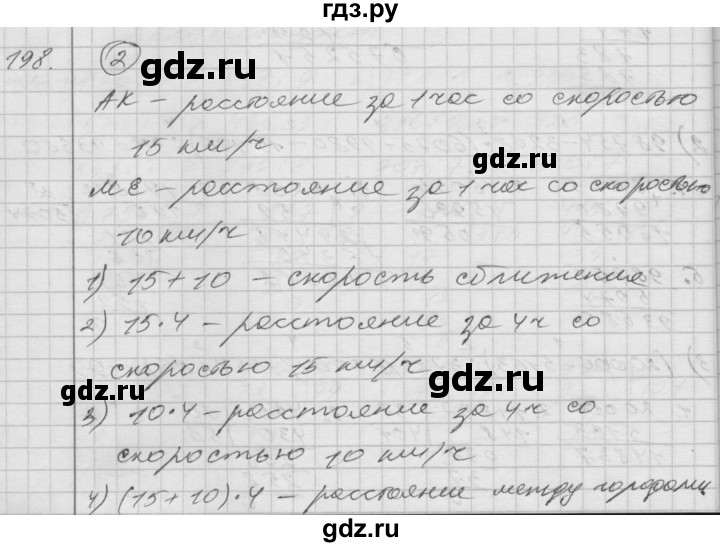 гдз.ру
198. 2
АК – расстояние за 1 час со скоростью
15 км/ч
МЕ – расстояние за 1 час со скоростью
10 км/ч
1) 15+10 – скорость сближения
2) 15·4 – расстояние за 4ч со
скоростью 15 км/ч
3) 10·4 – расстояние за 4ч со
скоростью 10 км/ч
4) (15+10)·4 – расстояние между городами
gdz.ru
gdz.ru
gdz.ru
gdz.ru
gdz.ru
gdz.ru
гдз.ру